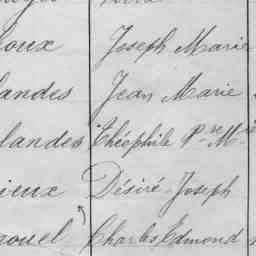 oux Joseph Marie
landes Jean Marie
landes Théophile Pre M
ieux Désiré Joseph
ouel Charles Edmond